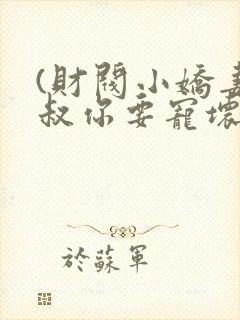 (財閥小嬌妻
叔你要寵壞
於蘇軍